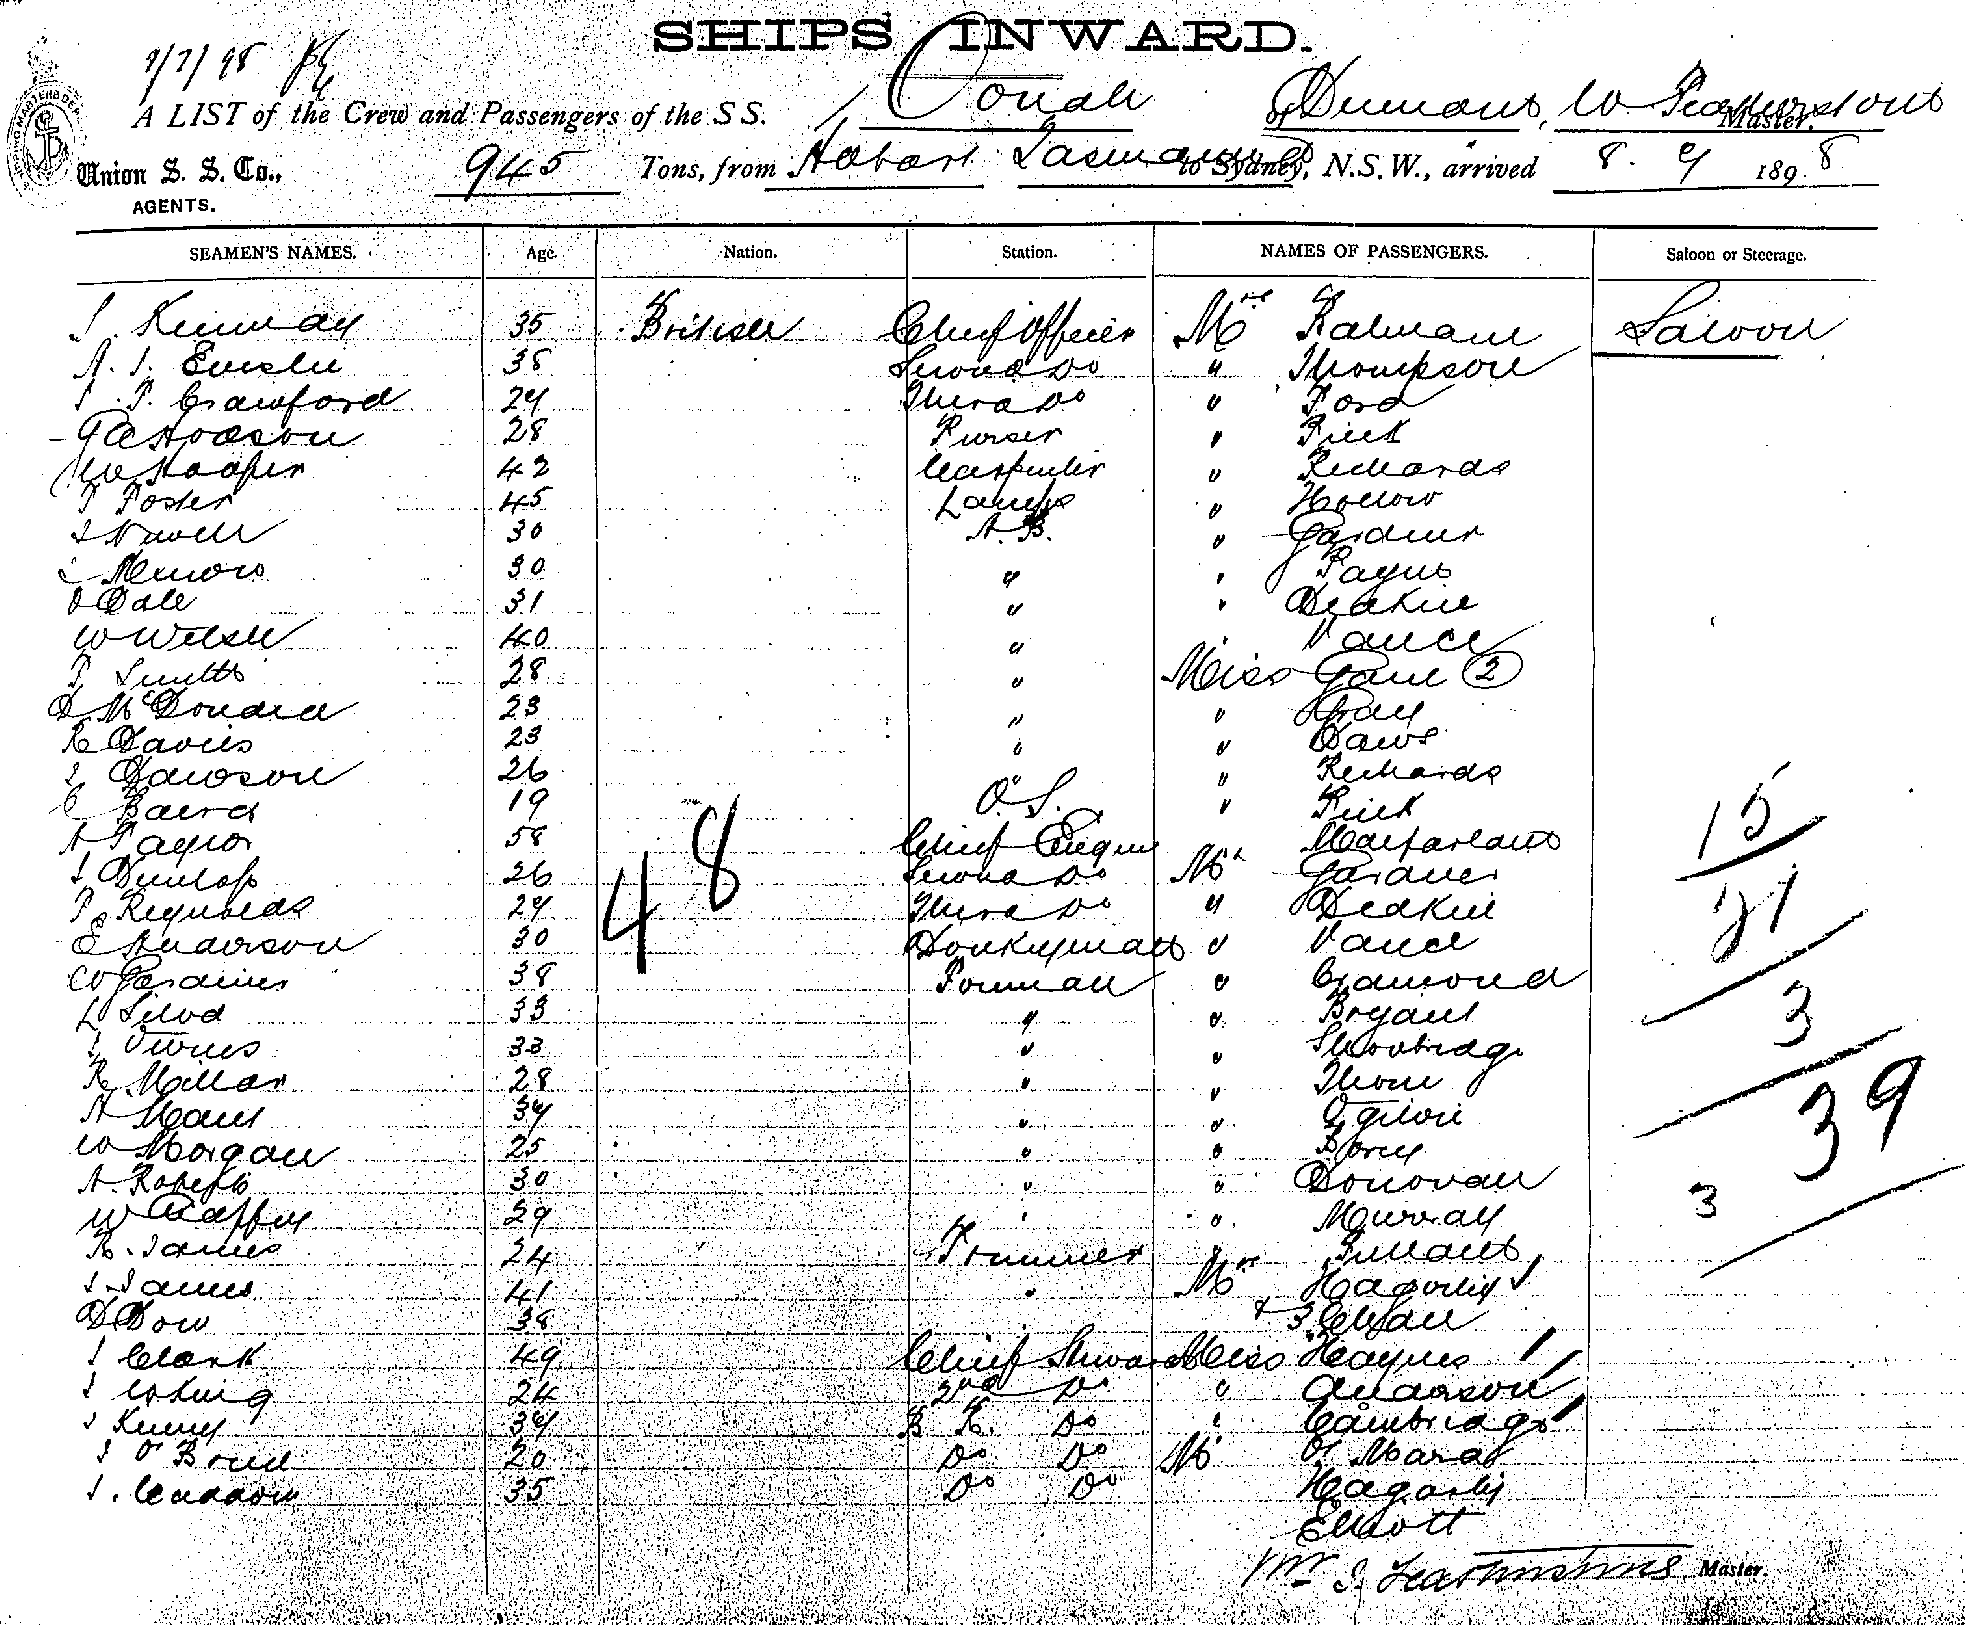 SHIPS INWARD.
9/7/98
A LIST of the Crew and Passengers of the S S. Oonah of Dunedin, W Featherstone Master.
Union S. S. Co., AGENTS.
945 Tons, from Hobart Tasmania to Sydney, N.S.W., arrived 8. 7 1898
SEAMEN'S NAMES. Age. Nation. Station. NAMES OF PASSENGERS. Saloon or Steerage.
35 British Chief Officer Mrs Saloon
38 Second Do " Thompson
J. P. Crawford 24 Third Do " Ford
G A Hodson 28 Purser "
W Hooper 42 Carpenter " Richards
P Foster 45 Lamps " Hollow
J Newell 30 A.B. " Gardner
30 " " Payne
Dale 31 " " Deakin
W Welsh 40 " " Vance
P Smith 28 " Miss 2
D McDonald 23 " " Gray
R Davies 23 " " Daws
J Dawson 26 " " Richards
C Baird 19 O.S. "
A Taylor 58 Chief Engine Macfarlane
J Dunlop 26 Second Do Mr Gardner
P. Reynolds 24 Third Do " Deakin
E Anderson 30 Donkeyman " Vance
W Gardiner 38 Foreman " Cramond
L Silva 33 " " Bryant
33 " " Shoobridge
R Millar 28 " " Thom
A 34 " " Ogilvie
W Morgan 25 " "
A. Roberts 30 " " Donovan
W 29 " " Murray
R. James 24 Trimmer "
J James 41 " Mrs Hagarty
D Dow 38 + 3 Chdn
J Clark 49 Chief Steward Miss Haynes
J 24 2nd Do " Anderson
J Kenny 34 B. R. Do " Cambridge
J O'Brien 20 Do Do Mr O'Mara
J. 35 Do Do Hagarty
Elliott
48
15
21
3
39
3
Wm J. Featherstone Master.